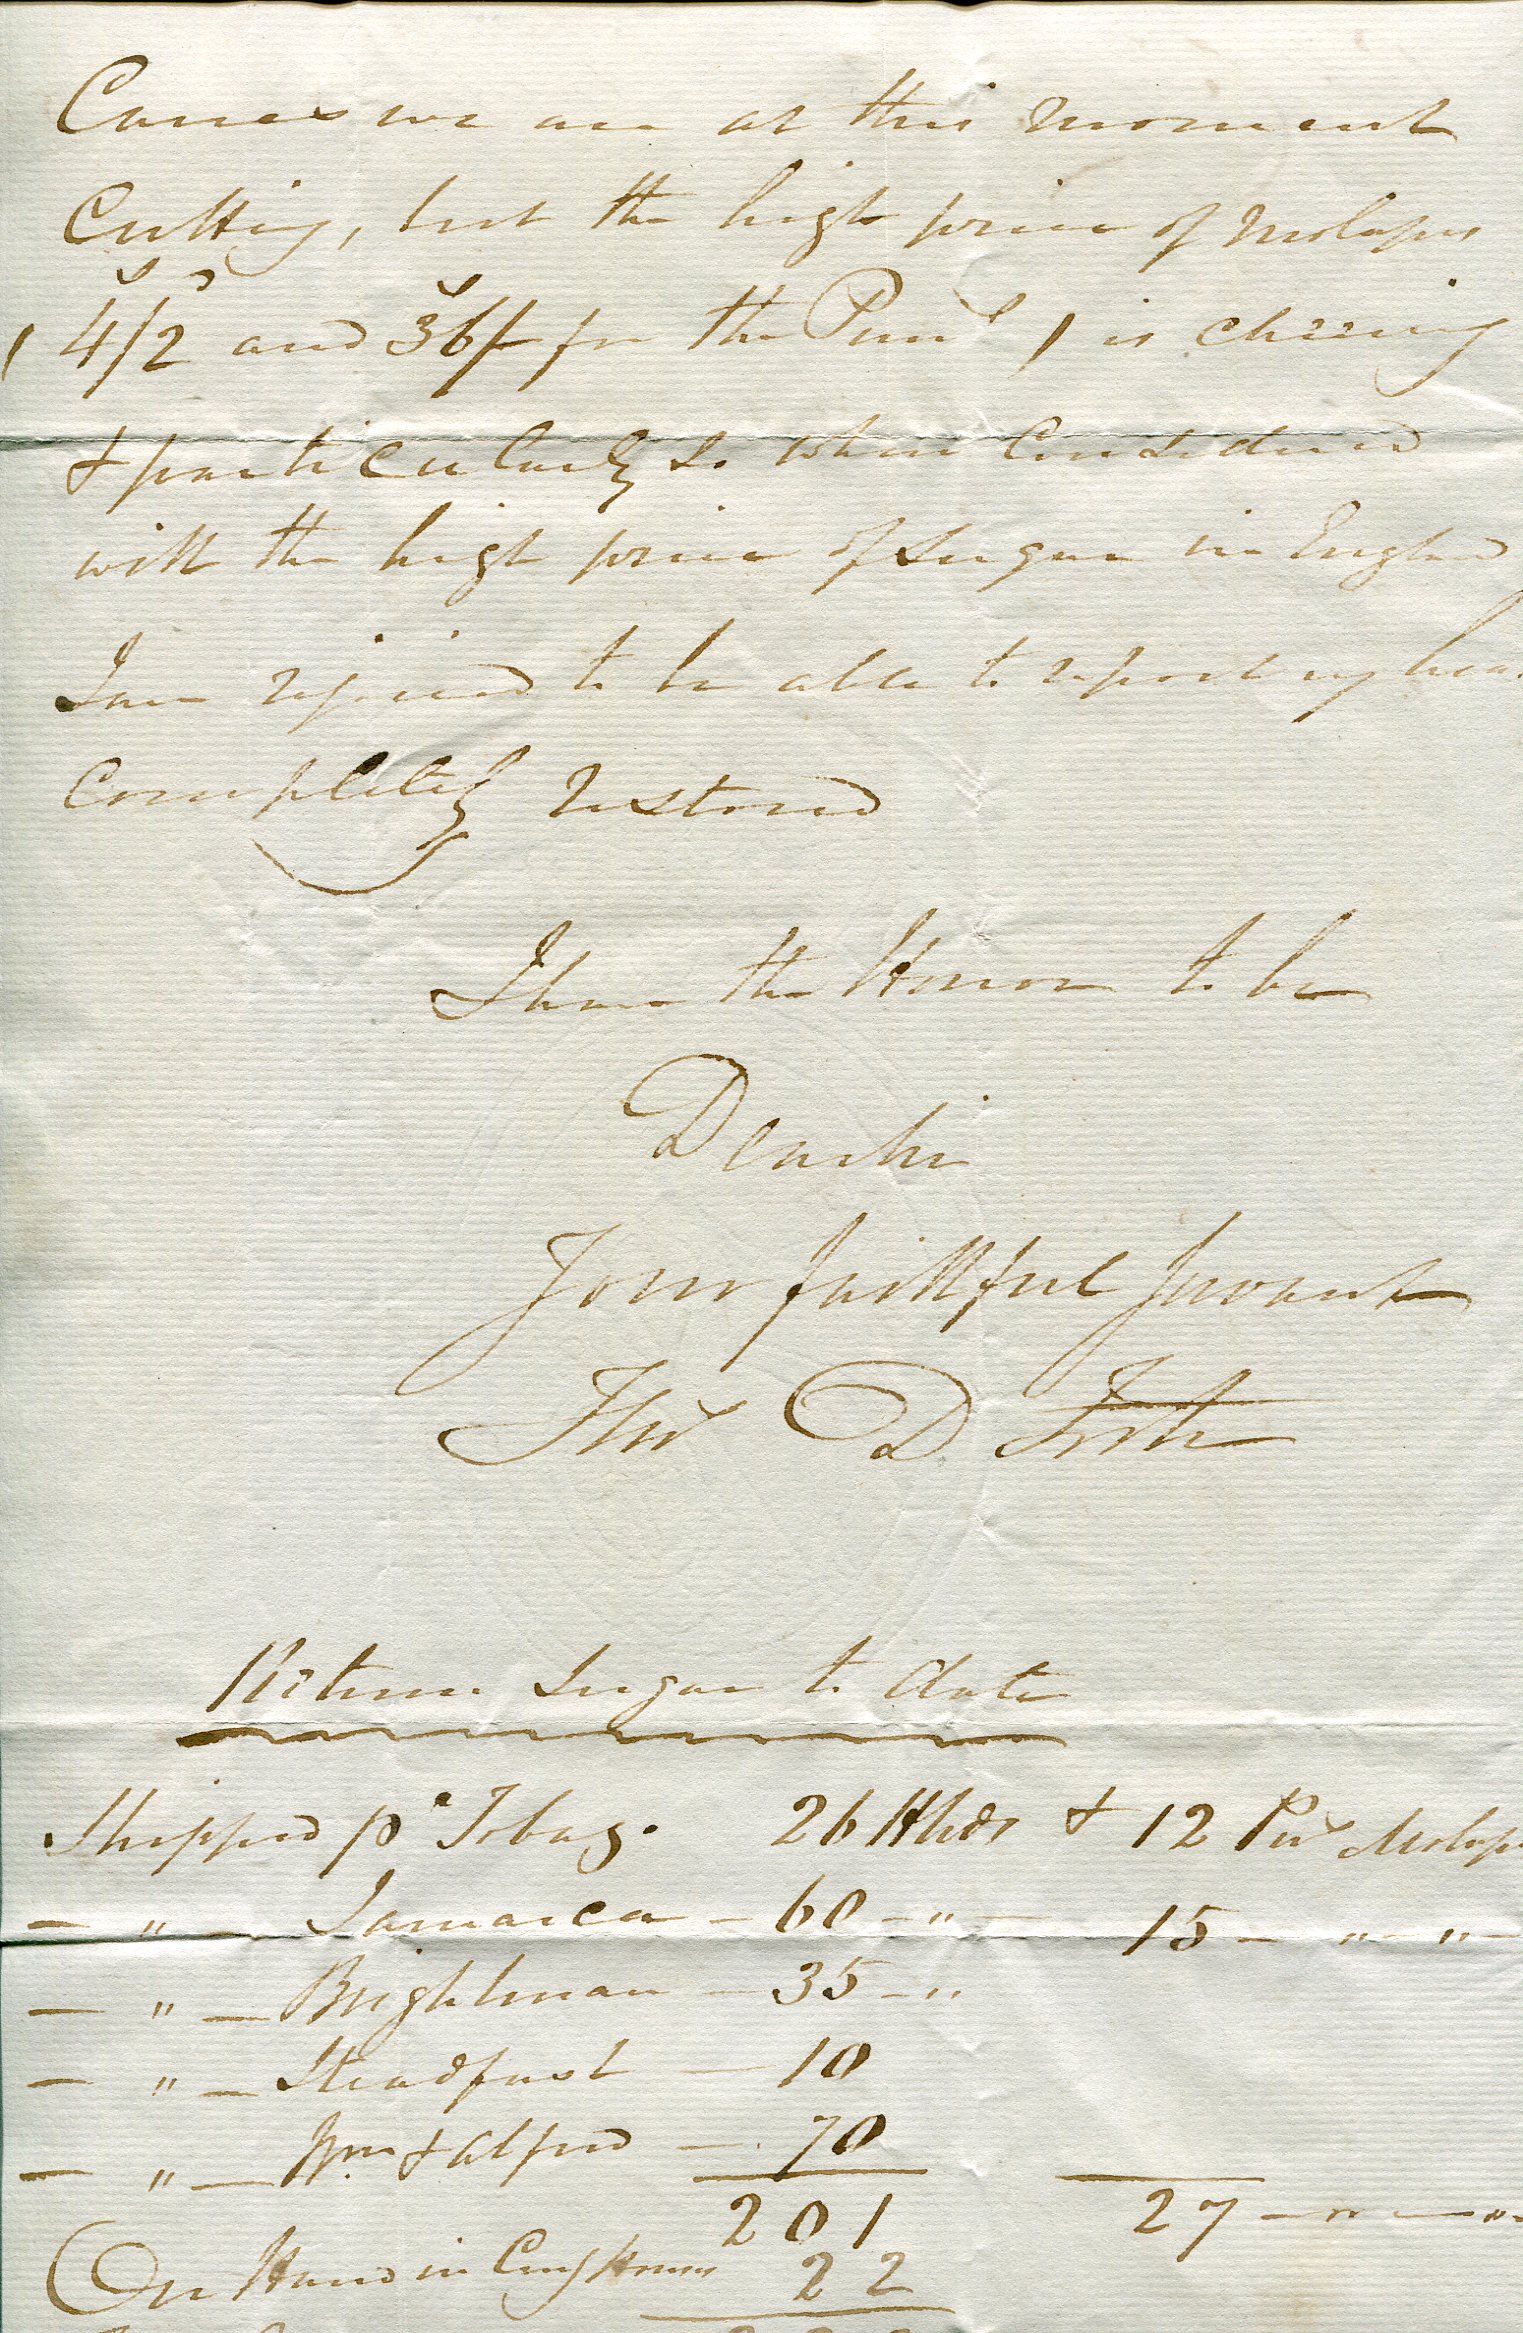 Canes we are at this moment
Cutting, but the high price of Molasses
( 4/2 and 36/- for the Punn ) is cheering
& particularly so when Considered
with the high price of Sugar in England
I am rejoiced to be able to report my
Completely restored
I have the Honor to be
Dear Sir
Your faithful Servant
Thos D
Return Sugar to date
Shipped pr Tobago 26 Hhds & 12 Pns Molass
— " — Jamaica — 60 — " — 15 — " — " —
— " — Brightman — 35 — "
— " — Steadfast — 10
— " — Wm & Alfred — 70
201 27 — " — "
On Hand in Curg House 22